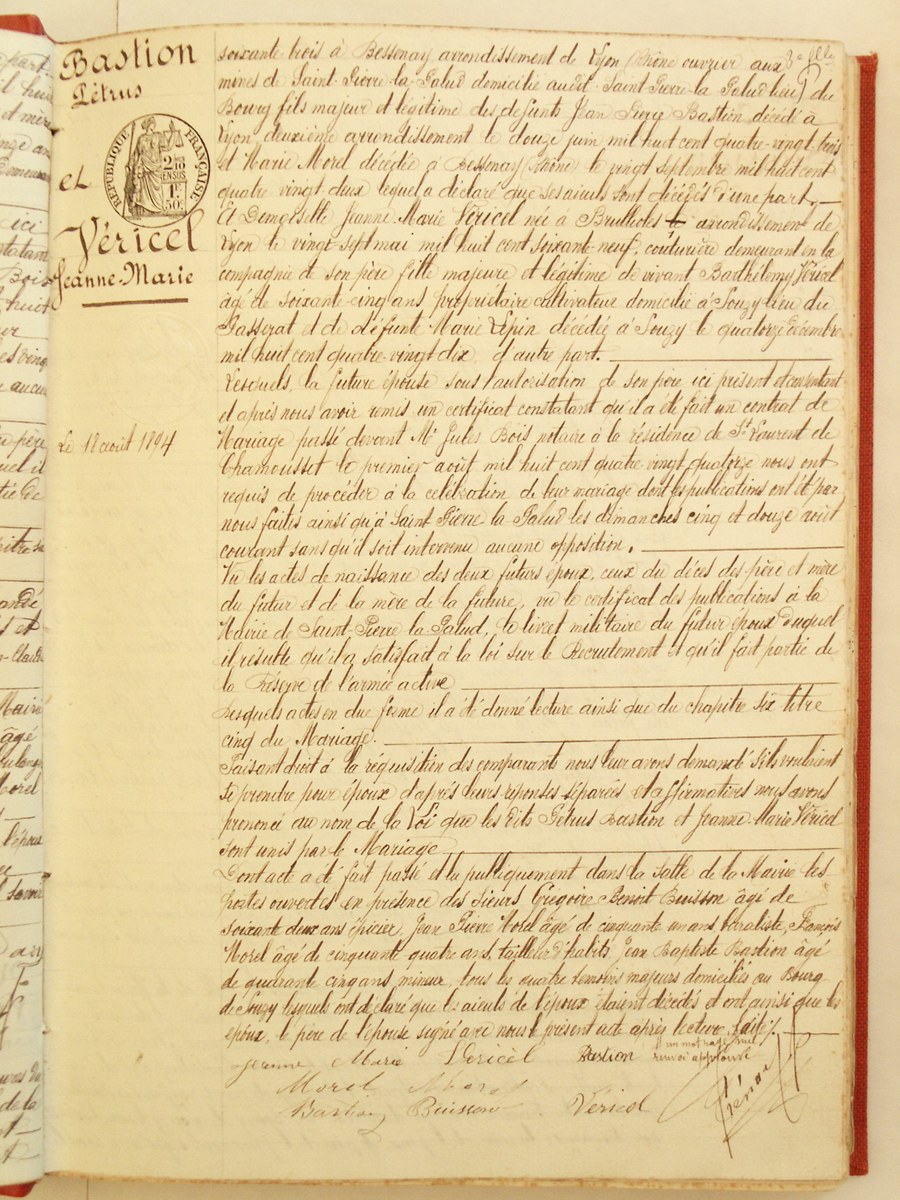 Bastion
Pétrus
et
Véricel
Jeanne-Marie
RÉPUBLIQUE FRANÇAISE
2/10 EN SUS
1F 50c
Le 18 août 1894
3e flle
soixante trois à Bessenay arrondissement de Lyon (Rhône ouvrier aux
mines de Saint-Pierre-la-Palud domicilié audit Saint-Pierre la Palud lieu du
Bourg fils majeur et légitime des défunts Jean Bastion décédé à
Lyon deuxième arrondissement le douze juin mil huit cent quatre-vingt-trois
et Marie Morel décédée à Bessenay (Rhône) le vingt septembre mil huit cent
quatre vingt deux lequel a déclaré que ses aïeuls sont décédés d'une part,
Et Demoiselle Jeanne-Marie Véricel née à Brullioles arrondissement de
Lyon le vingt sept mai mil huit cent soixante-neuf, couturière demeurant en la
compagnie de son père fille majeure et légitime de vivant Barthélemy Véricel
âgé de soixante-cinq ans propriétaire cultivateur domicilié à Souzy lieu du
Passerat et de défunte Marie Lépin décédée à Souzy le quatorze décembre
mil huit cent quatre-vingt dix, d'autre part.
Lesquels, la future épouse sous l'autorisation de son père ici présent et consentant
et après nous avoir remis un certificat constatant qu'il a été fait un contrat de
Mariage passé devant Me Jules Bois notaire à la résidence de St Laurent de
Chamousset le premier août mil huit cent quatre-vingt quatorze nous ont
requis de procéder à la célébration de leur mariage dont les publications ont été par
nous faites ainsi qu'à Saint Pierre la Palud les dimanches cinq et douze août
courant sans qu'il soit intervenu aucune opposition.
Vu les actes de naissance des deux futurs époux, ceux du décès des père et mère
du futur et de la mère de la future, vu le certificat des publications à la
Mairie de Saint-Pierre la Palud, le livret militaire du futur époux duquel
il résulte qu'il a satisfait à la loi sur le Recrutement et qu'il fait partie de
la Réserve de l'armée active
Desquels actes en due forme il a été donné lecture ainsi que du chapitre six titre
cinq du Mariage.
Faisant droit à la réquisition des comparants nous leur avons demandé s'ils voulaient
se prendre pour époux d'après leurs réponses séparées et affirmatives nous avons
prononcé au nom de la Loi que les dits Pétrus Bastion et Jeanne Marie Véricel
sont unis par le Mariage
Dont acte a été fait passé et lu publiquement dans la salle de la Mairie les
portes ouvertes en présence des sieurs Grégoire Benoit Buisson âgé de
soixante deux ans épicier, Jean Pierre Morel âgé de cinquante un ans buraliste, François
Morel âgé de cinquante quatre ans, tailleur d'habits, Jean Baptiste Bastion âgé
de quarante cinq ans mineur, tous les quatre témoins majeurs domiciliés au Bourg
de Souzy lesquels ont déclaré que les aïeuls de l'époux étaient décédés et ont ainsi que les
époux, le père de l'épouse signé avec nous le présent acte après lecture faite
un mot rayé nul
renvoi approuvé
Jeanne Marie Véricel Bastion
Morel Morel
Bastion Buisson Véricel